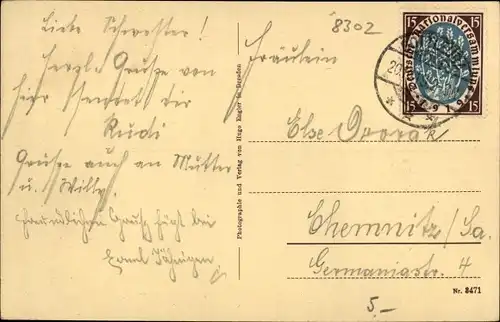 Liebe Schwester!
Herzl. Grüsse von
hier sendet dir
Rudi
Grüsse auch an Mutter
u. Willy.
freundlichen Gruß fügt bei
Photographie und Verlag von Hugo Engler in Dresden
8302
Fräulein
Else
Chemnitz/Sa.
Germaniastr. 4
Nr. 8471
5.-
15 Deutsche Nationalversammlung 15
1919
15 15